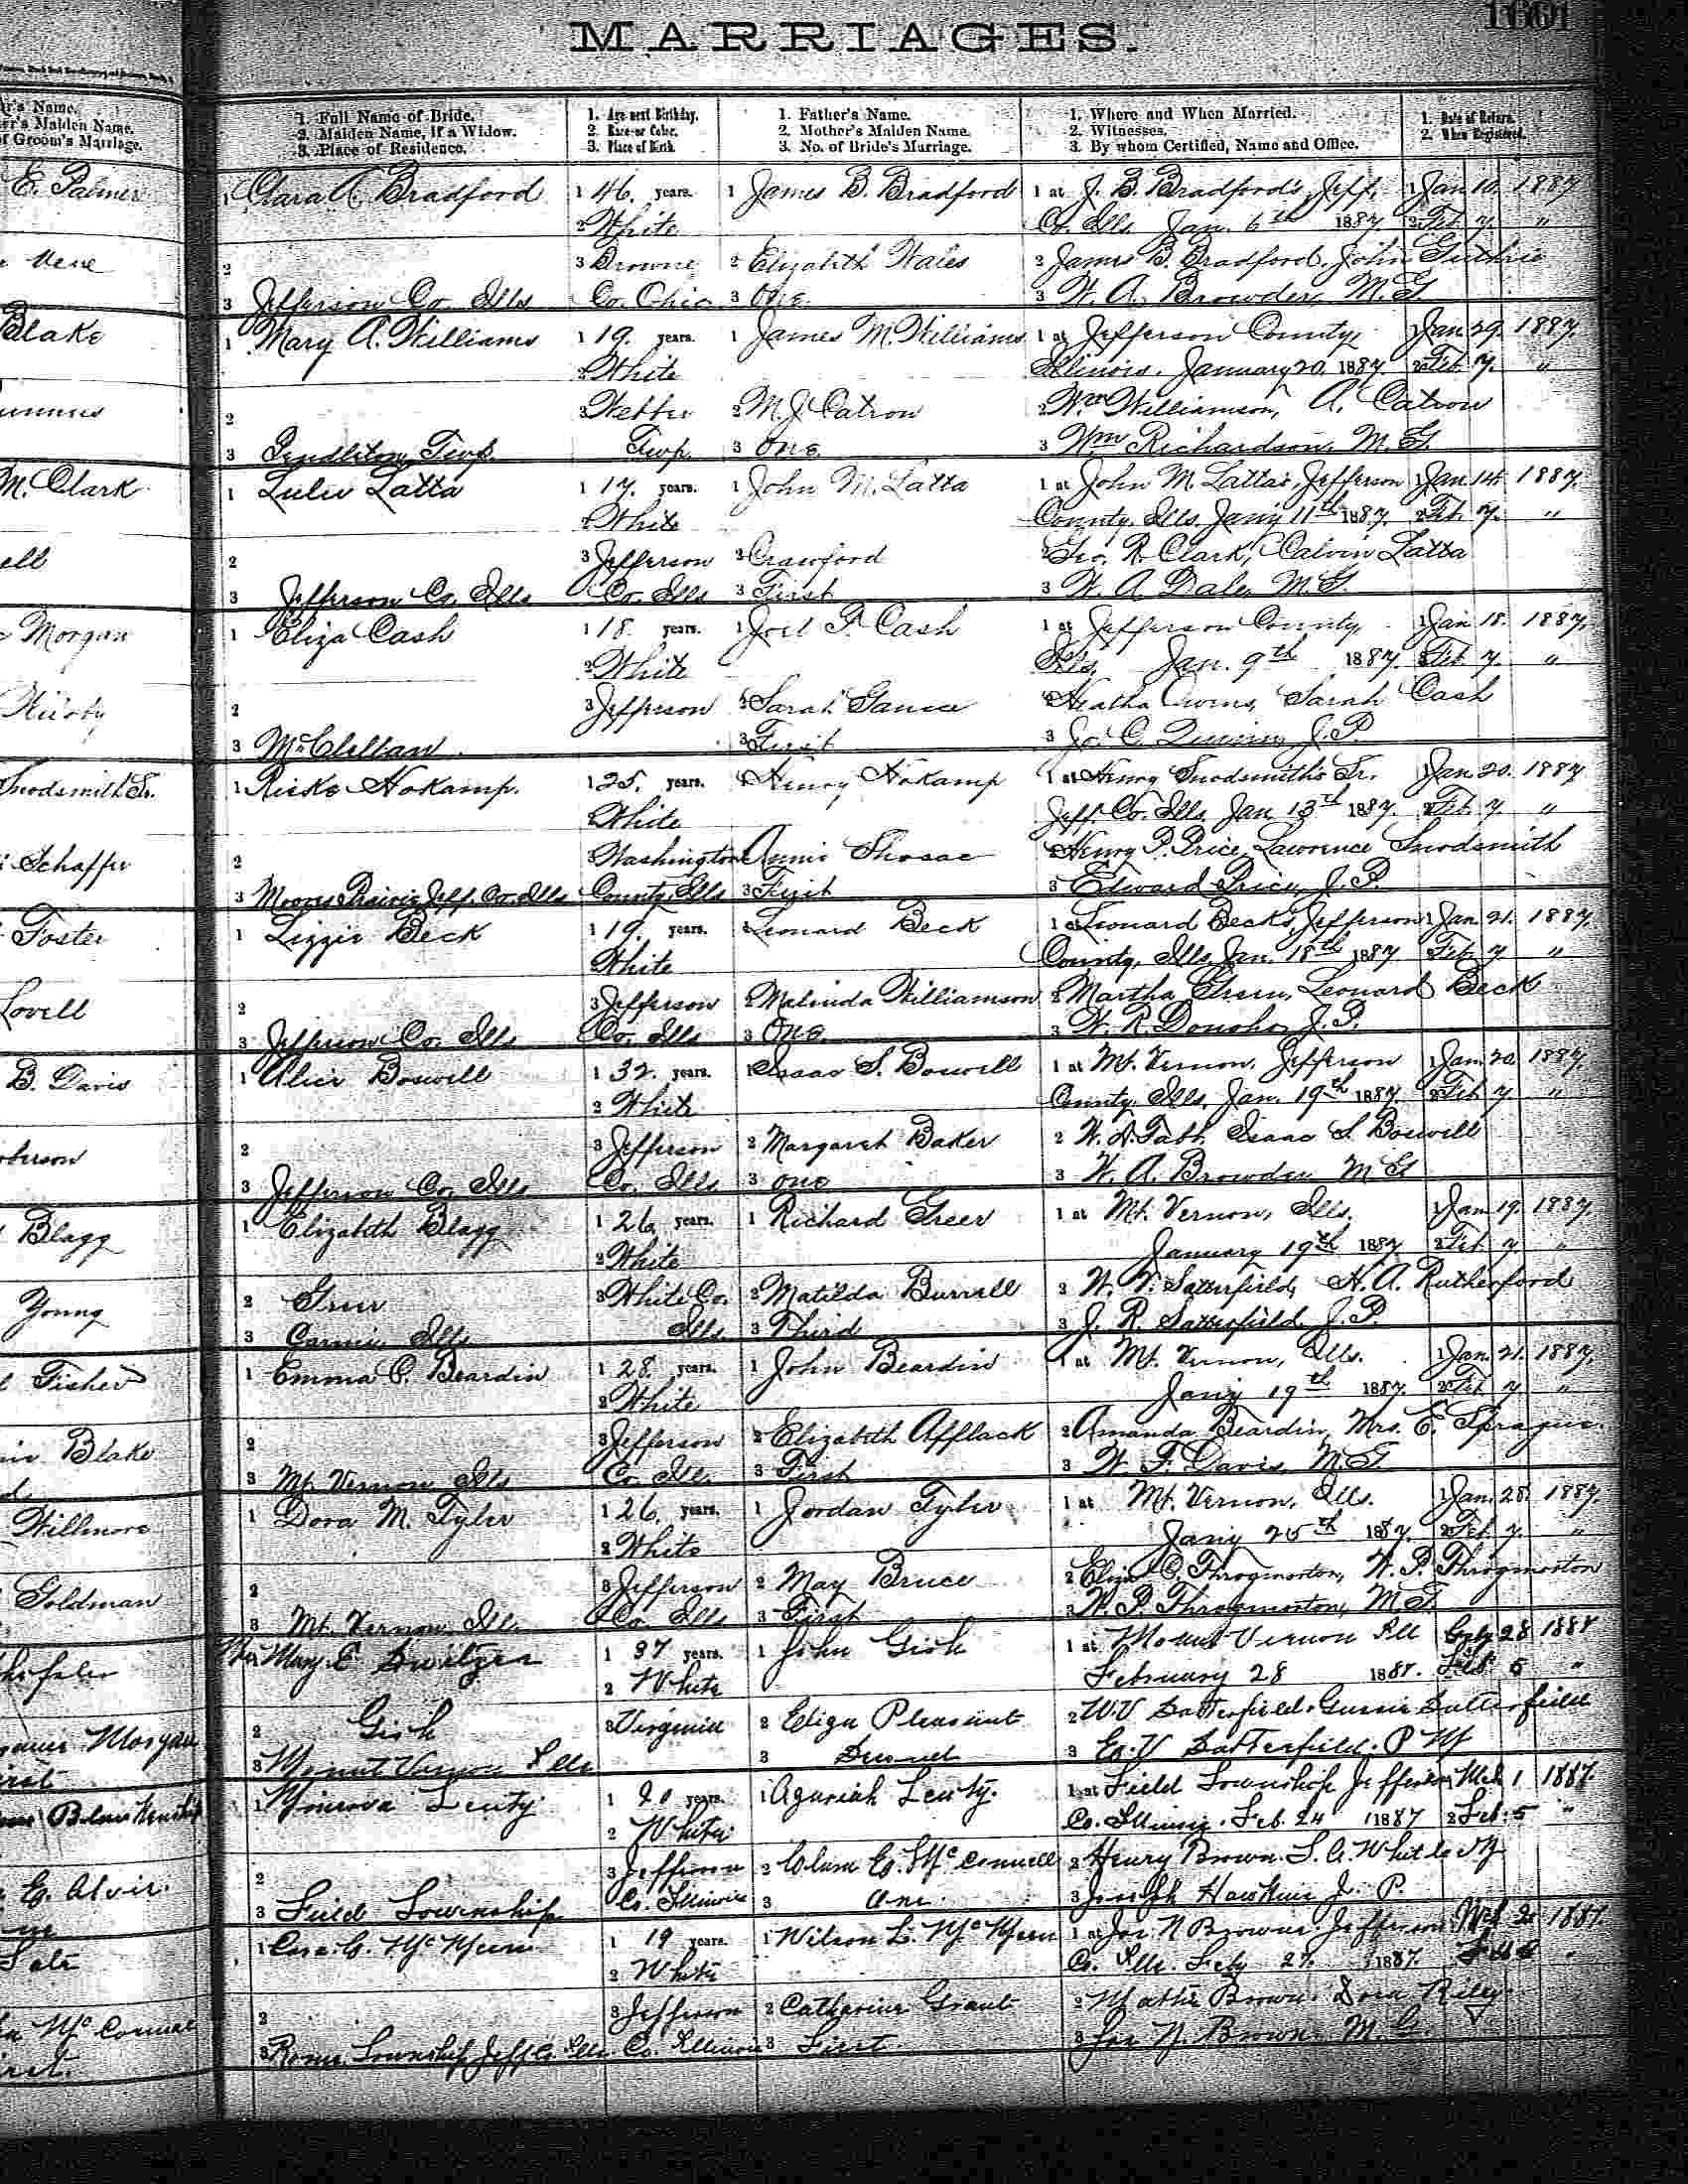 MARRIAGES.
1. Full Name of Bride.
2. Maiden Name, if a Widow.
3. Place of Residence.
1. Age next Birthday.
2. Race or Color.
3. Place of Birth.
1. Father's Name.
2. Mother's Maiden Name.
3. No. of Bride's Marriage.
1. Where and When Married.
2. Witnesses.
3. By whom Certified, Name and Office.
1. Date of Return.
2. When Registered.
E. Palmer
1 Clara A. Bradford 1 46. years. 1 James B. Bradford 1 at J. B. Bradford's, Jeff, 1 Jan 10. 1887
2 White Co. Ills. Jan. 6th 1887 2 Feb 7. "
2 3 Browne 2 Elizabeth Wales 2 James B. Bradford, John Guthrie
3 Jefferson Co. Ills Co. Ohio 3 One. 3 W. A. Browder, M.G.
Blake
1 Mary A. Williams 1 19. years. 1 James M. Williams 1 at Jefferson County, 1 Jan. 29. 1887.
2 White Illinois. January 20. 1887 2 Feb. 7. "
2 3 Webber 2 M. J. Catron 2 Wm Williamson, A. Catron
3 Pendleton Twp. Twp. 3 One 3 Wm Richardson, M.G.
M. Clark
1 Lulu Latta 1 17. years. 1 John M. Latta 1 at John M. Latta's, Jefferson 1 Jan. 14. 1887.
2 White County, Ills. Jan'y 11th 1887. 2 Feb. 7. "
2 3 Jefferson 2 Crawford 2 Geo. R. Clark, Calvin Latta
3 Jefferson Co. Ills Co. Ills 3 First 3 W. A. Dale, M.G.
Morgan
1 Eliza Cash 1 18. years. 1 Joel P. Cash 1 at Jefferson County 1 Jan 18. 1887.
2 White Ills, Jan. 9th 1887. 2 Feb 7. "
2 3 Jefferson 2 Sarah 2 Owens, Sarah Cash
3 McClellan. 3 First 3 J. P.
1 Hokamp. 1 25. years. 1 Henry Hokamp 1 at Henry Snodsmith's Sr. 1 Jan. 20. 1887
2 White Jeff. Co. Ills. Jan 13th 1887. 2 Feb. 7. "
Schaffer
2 3 Washington 2 Annie 2 Henry P. Price, Lawrence Snodsmith
3 Moores Prairie, Jeff. Co. Ills County, Ills 3 First 3 Edward Price, J. P.
Foster
1 Lizzie Beck 1 19. years. 1 Leonard Beck 1 at Leonard Beck's, Jefferson 1 Jan. 21. 1887.
2 White County, Ills. Jan. 18th 1887 2 Feb. 7 "
Lovell
2 3 Jefferson 2 Malinda Williamson 2 Martha Green, Leonard Beck
3 Jefferson Co. Ills Co. Ills 3 One 3 W. R. Donoho, J. P.
B. Davis
1 Alice Boswell 1 32. years. 1 Isaac S. Boswell 1 at Mt. Vernon, Jefferson 1 Jan. 20. 1887.
2 White County, Ills, Jan. 19th 1887. 2 Feb 7 "
2 3 Jefferson 2 Margaret Baker 2 Isaac S. Boswell
3 Jefferson Co. Ills Co. Ills 3 One 3 W. A. Browder M G
Blagg
1 Elizabeth Blagg 1 26 years. 1 Richard Greer 1 at Mt. Vernon, Ills. 1 Jan. 19. 1887.
2 White January 19th 1887 2 Feb. 7. "
Young
2 Greer 3 White Co. 2 Matilda Burrell 2 W. V. Satterfield, H. A. Rutherford
3 Carmi, Ills. Ills 3 Third 3 J. R. Satterfield, J. P.
Fisher
1 Emma C. Beardin 1 28. years. 1 John Beardin 1 at Mt. Vernon, Ills. 1 Jan. 21. 1887.
2 White Jan'y 19th 1887. 2 Feb 7 "
Blake
2 3 Jefferson 2 Elizabeth Afflack 2 Amanda Beardin, Mrs. E. Sprague.
3 Mt. Vernon, Ills Co. Ills. 3 First 3 W. F. Davis, M.G.
Willmore
1 Dora M. Tyler 1 26. years. 1 Jordan Tyler 1 at Mt. Vernon, Ills. 1 Jan. 28. 1887.
2 White Jan'y 25th 1887. 2 Feb. 7. "
Goldman
2 3 Jefferson 2 May Bruce 2 C. Throgmorton, W. P. Throgmorton
3 Mt. Vernon, Ills. Co. Ills 3 First 3 W. P. Throgmorton, M.G.
Mrs Mary E Switzer 1 37 years. 1 John Gish 1 at Mount Vernon Ill 28 1887
2 White February 28 1887. 5 "
Morgan
2 Gish 3 Virginia 2 Eliza Pleasant 2 W V Satterfield, Satterfield
3 Mount Vernon Ills 3 Second 3 Satterfield.
1 Minerva Lenty 1 20 years. 1 Azariah Lenty. 1 at Field Township Jefferson Mch 1 1887.
2 White. Co. Illinois. Feb. 24 1887 2 Feb. 5 "
2 3 Jefferson 2 McConnell 2 Henry Brown.
3 Field Township Co. Illinois 3 One. 3 Joseph Hawkins J. P.
1 1 19 years. 1 Wilson L. 1 at Jos. N Browns. Jefferson 1887.
2 White Co. Ills. Feby 27. 1887. "
McConnell
2 3 Jefferson 2 Catharine Grant 2 Mattie Brown. Dora Riley.
3 Rome Township Jeff Co. Ills Co. Illinois 3 First 3 Jos N. Brown. M. G.